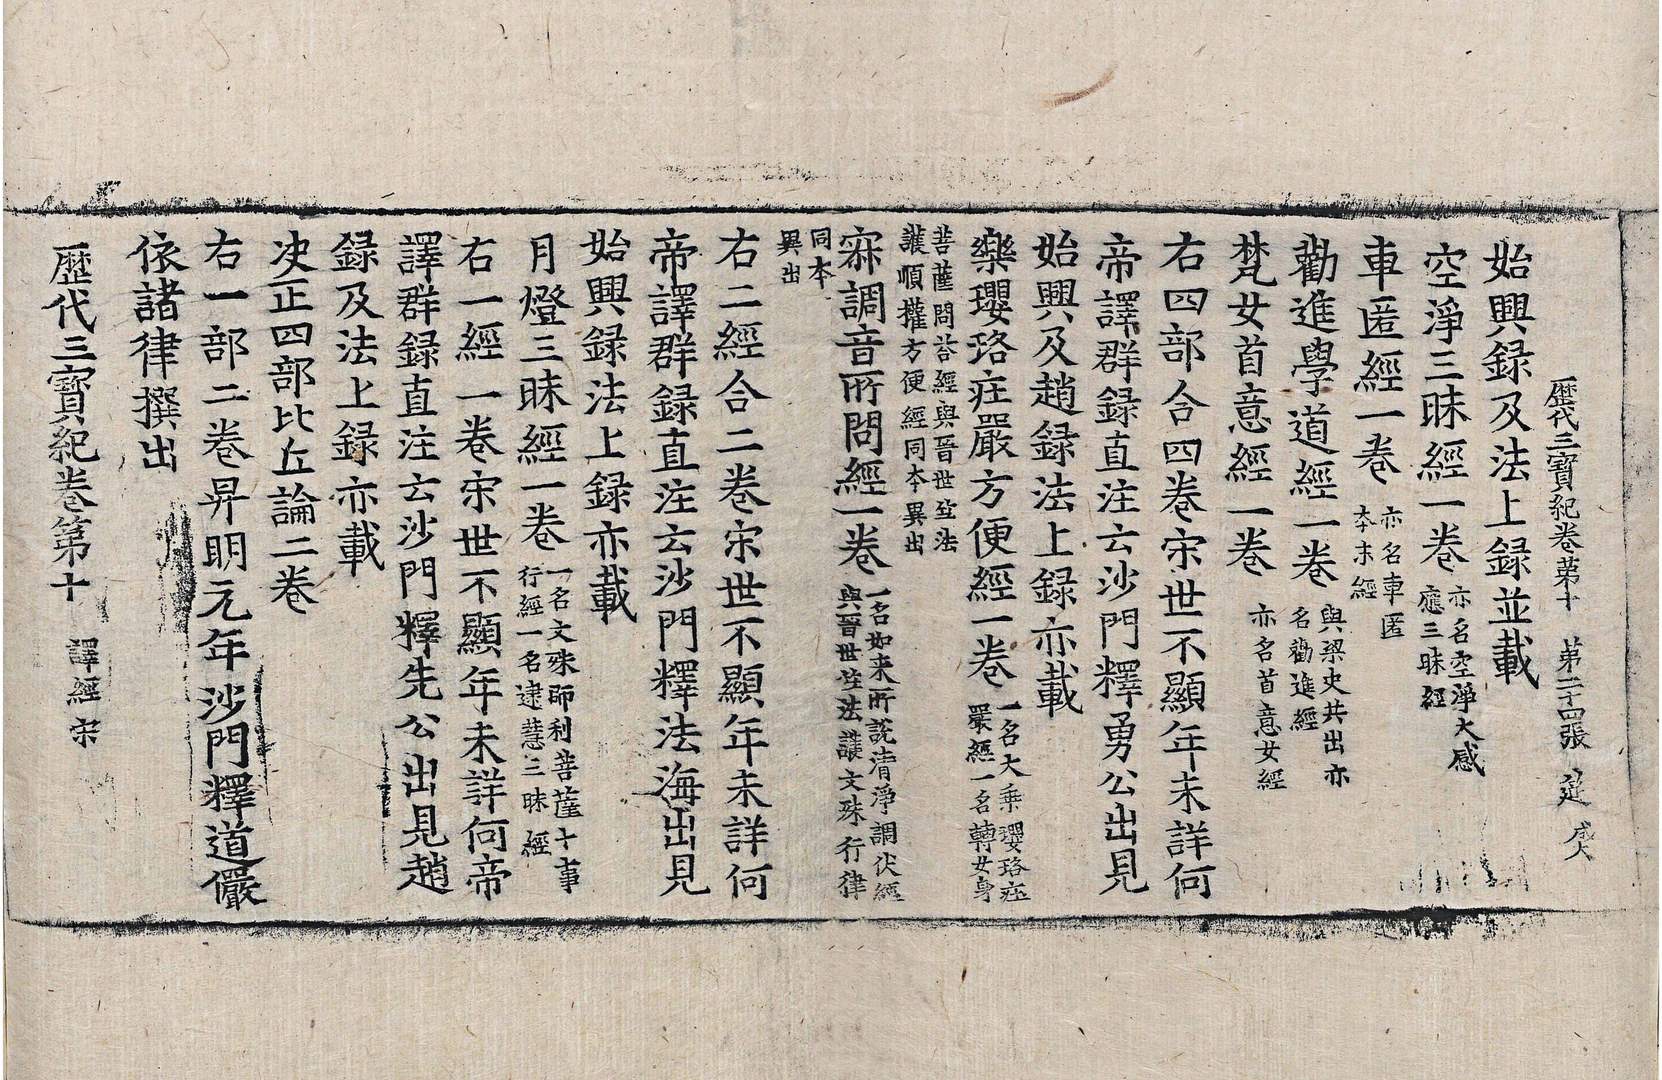 歷代三寶紀卷第十　第二十四張　𨒂　感
始興録及法上録並載
空淨三昧經一卷 亦名空淨大感
應三昧經
車匿經一卷 亦名車匿
夲末經
勸進學道經一卷 與梁史共出亦
名勸進經
梵女首意經一卷 亦名首意女經
右四部合四卷宋世不顯年未詳何
帝譯群録直注云沙門釋勇公出見
始興及趙録法上録亦載
樂瓔珞莊嚴方便經一卷 一名大乗瓔珞莊
嚴經一名轉女身
菩薩問荅經與晉世竺法
護順權方便經同夲異出
寂調音所問經一卷 一名如来所說清淨調伏經
與晉世竺法護文殊行律
同夲
異出
右二經合二卷宋世不顯年未詳何
帝譯群録直注云沙門釋法海出見
始興録法上録亦載
月燈三昧經一卷 一名文殊師利菩薩十事
行經一名逮慧三昧經
右一經一卷宋世不顯年未詳何帝
譯群録直注云沙門釋先公出見趙
録及法上録亦載
决正四部比丘論二卷
右一部二卷昇明元年沙門釋道儼
依諸律撰出
歷代三寶紀卷第十　譯經宋